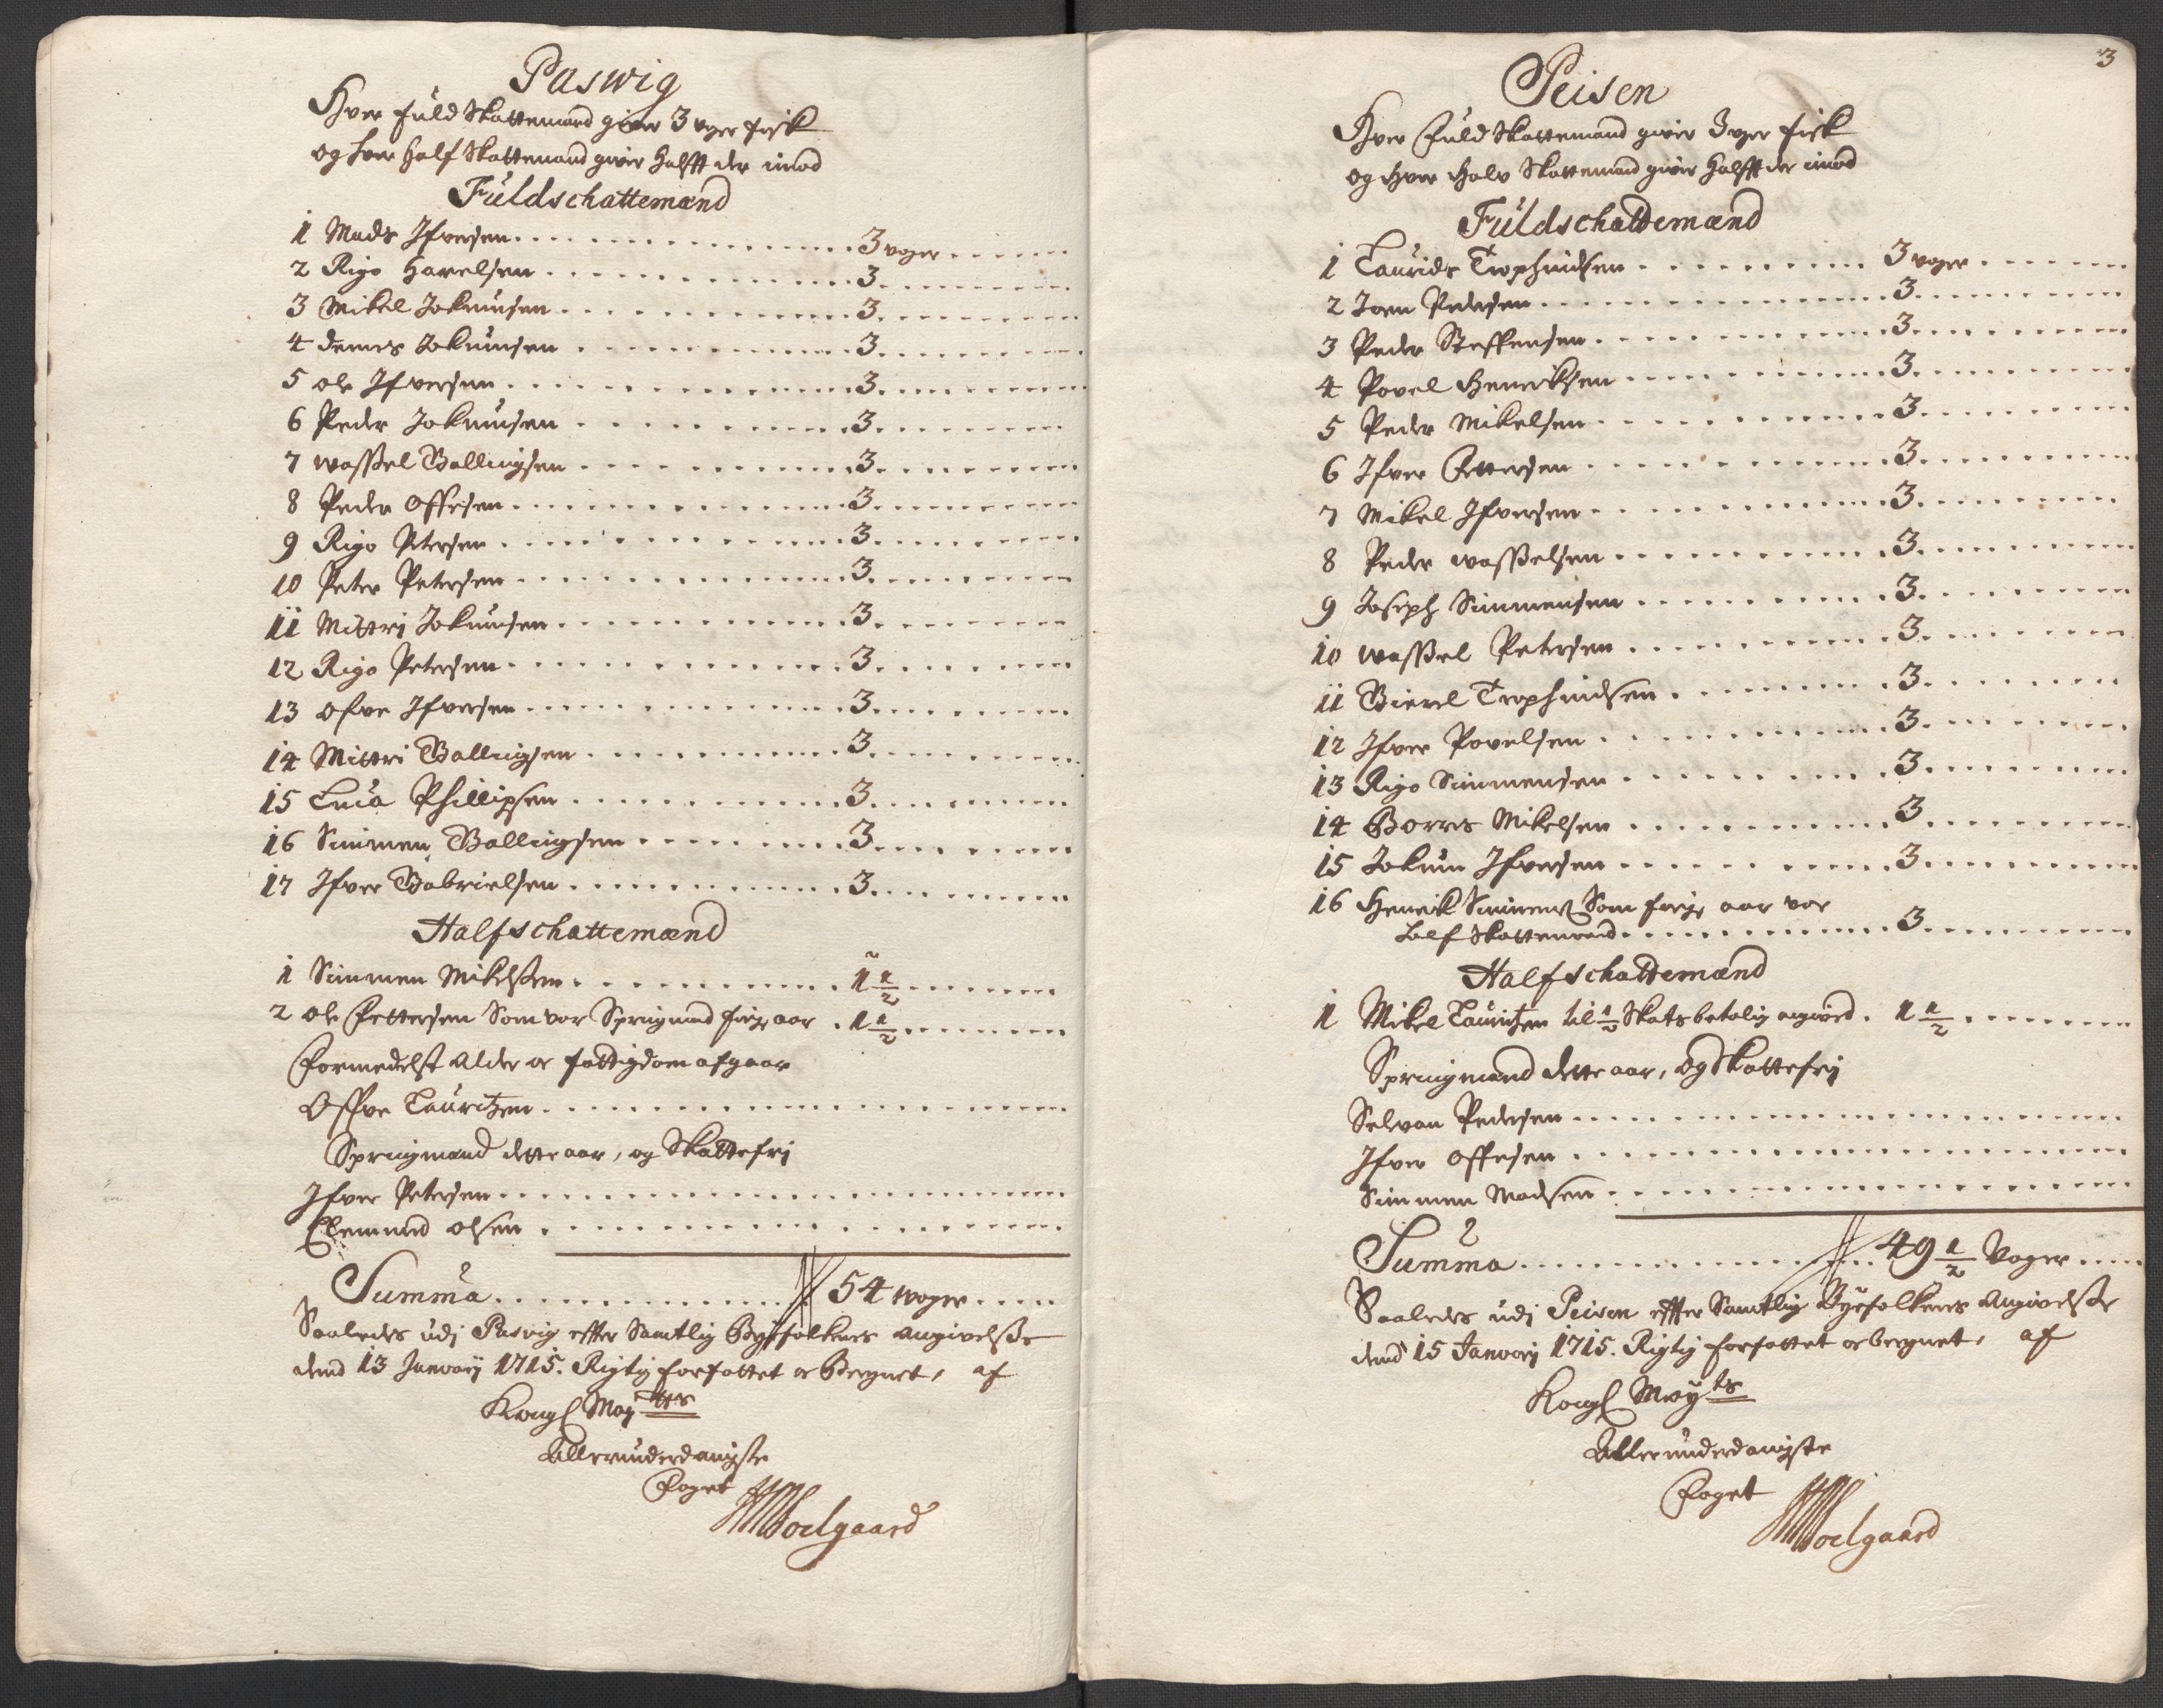 Paswig
Hver fuld Skattemand giver 3 voger fisk
og hver half Skattemand giver halfft der imod
Fuldschattemænd
1 Mads Ifversen 3 voger
2 Rigo Havelsen 3
3 Mikel Jokumsen 3
4 Denis Jokumsen 3
5 Ole Ifversen 3
6 Peder Jokumsen 3
7 Wassel Ballingsen 3
8 Peder Offesen 3
9 Rigo Petersen 3
10 Peter Petersen 3
11 Mittri Jokumsen 3
12 Rigo Petersen 3
13 Ofve Ifversen 3
14 Mittri Ballingsen 3
15 Luca Phillipsen 3
16 Simmen Ballingsen 3
17 Ifver Gabrielsen 3
Halfschattemænd
1 Simmen Mikelsen 1 1/2
2 Ole Pettersen Som var Springmand forige aar 1 1/2
Formedelst Alder og fattigdom afgaar
Offve Lauritzen
Springmænd dette aar, og Skattefrj
Ifver Petersen
Clemmed Olsen
Summa 54 voger
Saaledes udj Pasvig effter Samtlig Byefolkenes angivelsse
dend 13 Januarij 1715. Rigtig forfattet og Beregnet, af
Kongl May tts
Allerunderdanigste
Foget
Soelgaard
3
Peisen
Hver Fuld Skattemand giver 3 voger fisk
og hver halv Skattemand giver halfft der imod
Fuldschattemænd
1 Laurids Trophindsen 3 voger
2 Joen Pedersen 3
3 Peder Steffensen 3
4 Povel Henrichsen 3
5 Peder Mikelsen 3
6 Ifver Pettersen 3
7 Mikel Ifversen 3
8 Peder Wasselsen 3
9 Joseph Simmensen 3
10 Wassel Petersen 3
11 Bierel Trophindsen 3
12 Ifver Povelsen 3
13 Rigo Simmensen 3
14 Borris Mikelsen 3
15 Jokum Ifversen 3
16 Henrik Simmens Som forige aar var
half Skattemand 3
Halfschattemænd
1 Mikel Lauritzen til 1/2 Skats betaling angived 1 1/2
Springmænd dette aar, og Skattefrj
Selvan Pedersen
Ifver Offesen
Simmen Madsen
Summa 49 1/2 Voger
Saaledes udj Peisen effter Samtlig Byefolkenes Angivelsse
dend 15 Januarij 1715. Rigtig forfattet og beregnet, af
Kongl May ts
Allerunderdanigste
Foget
Soelgaard